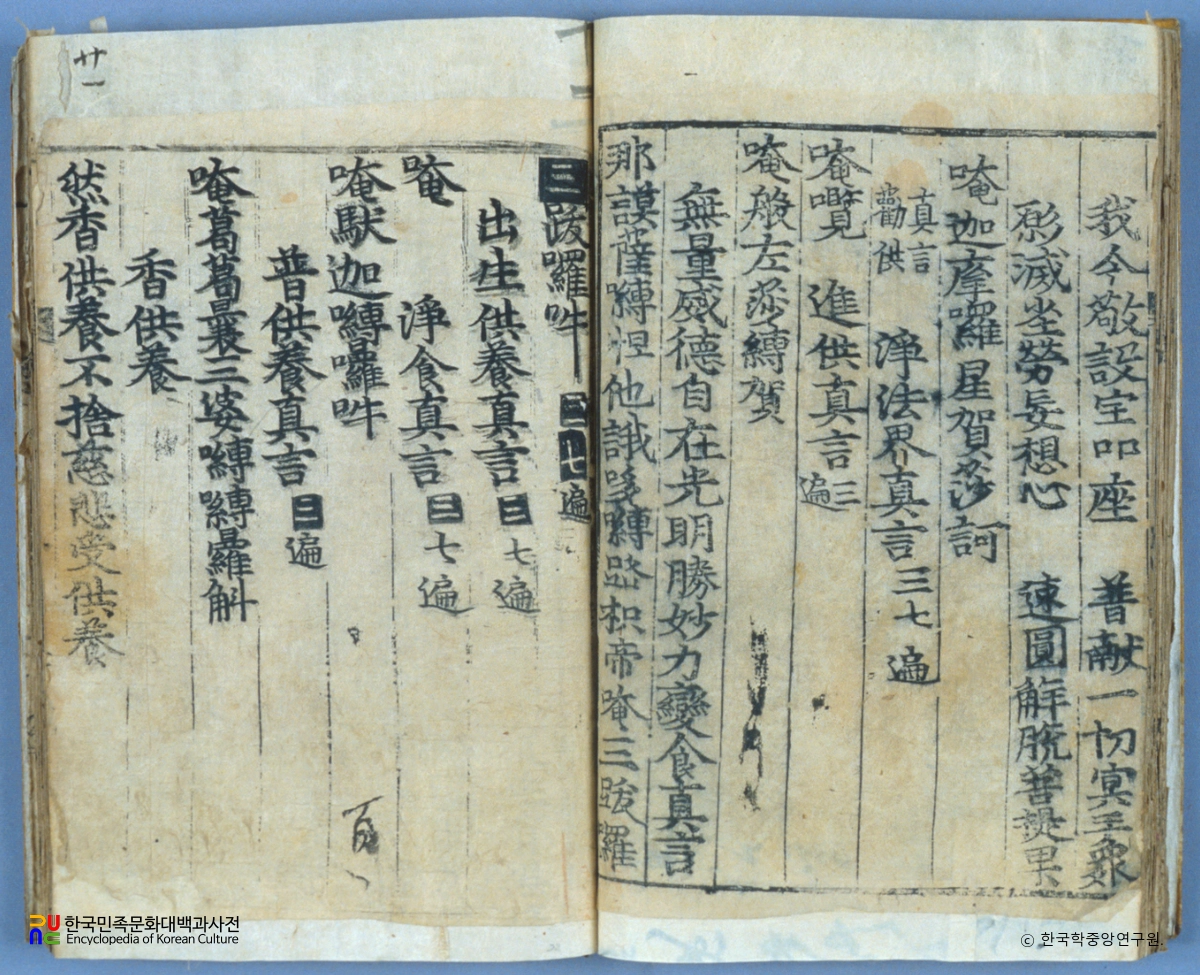 我今敬設宝叩座　普献一切冥王衆
愿滅坐勞妄想心　速圓觧脱菩提果
唵迦摩囉星賀莎訶
真言勸供　淨法界真言三七遍
唵囕　進供真言三遍
唵般左莎縛賀
無量威德自在光明勝妙力變食真言
那謨薩嚩怛他誐哆嚩路枳帝唵三跋羅
三跋囉吽　三七遍
出生供養真言三七遍
唵　淨食真言三七遍
唵䭾迦嚩囉吽
普供養真言三遍
唵葛葛曩三婆嚩嚩羅斛
香供養
然香供養不捨慈悲受供養
廿一
한국민족문화대백과사전
Encyclopedia of Korean Culture
© 한국학중앙연구원.